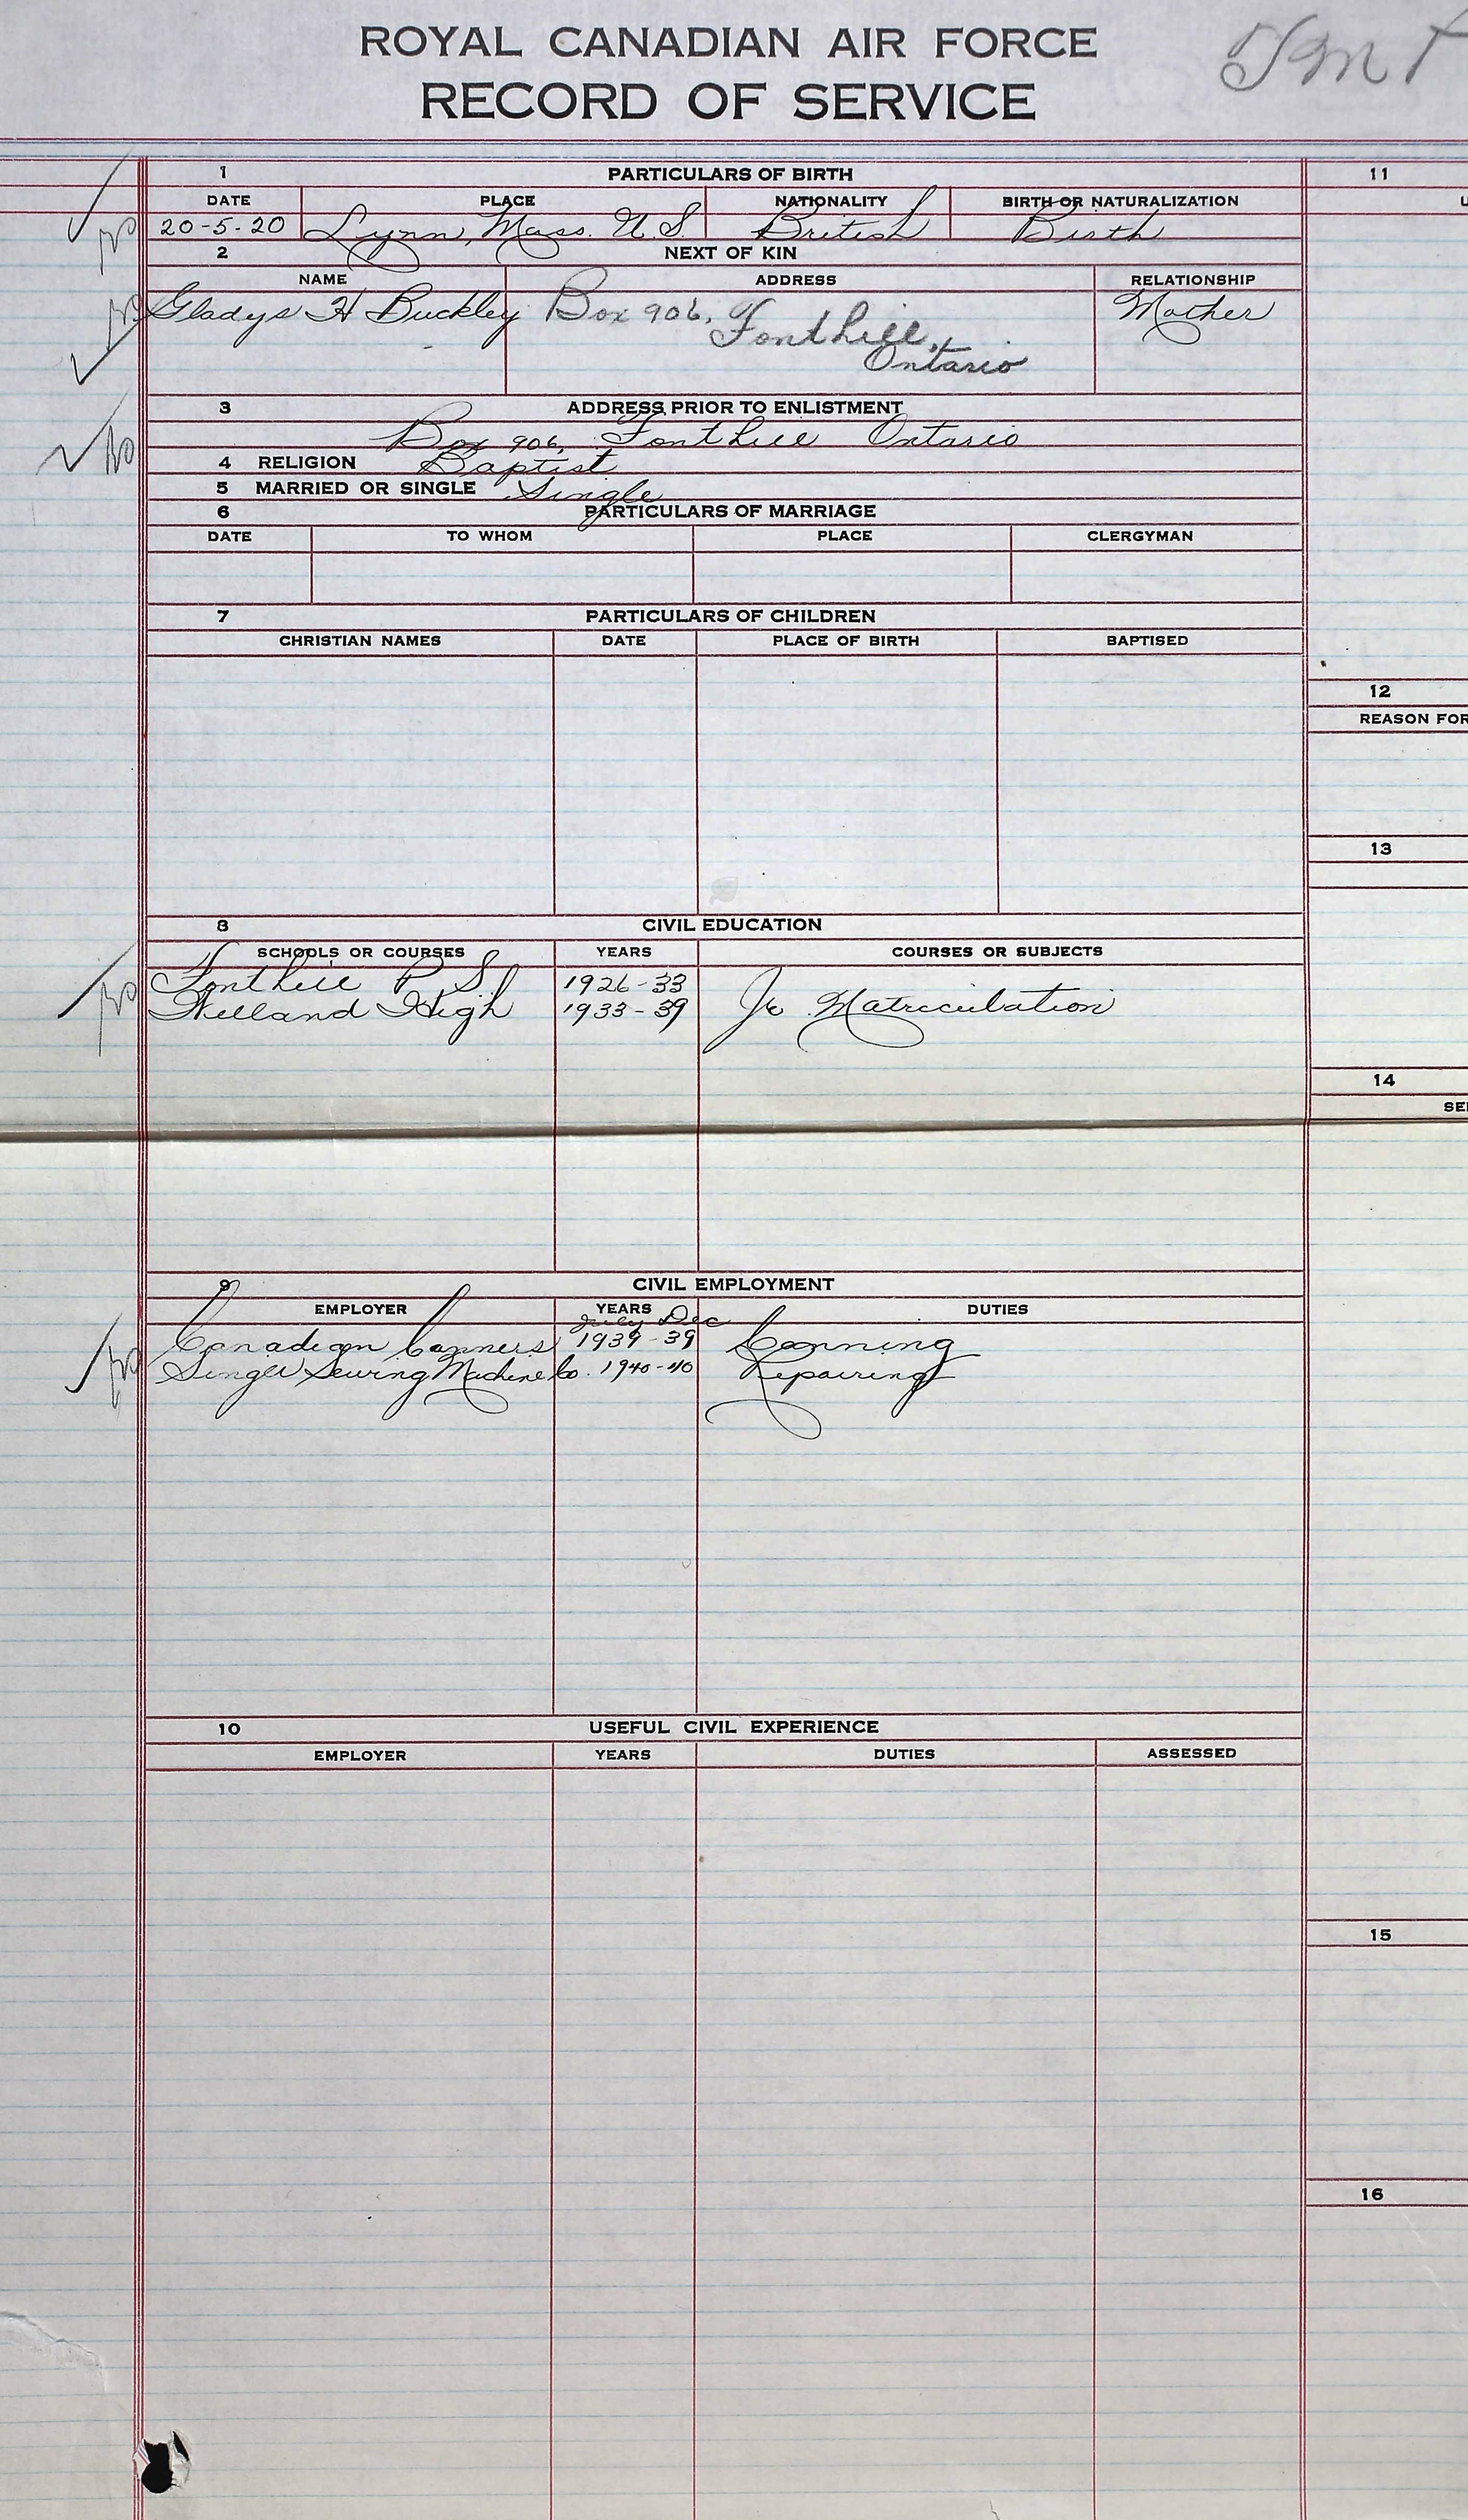 ROYAL CANADIAN AIR FORCE
RECORD OF SERVICE
1 PARTICULARS OF BIRTH 11
DATE PLACE NATIONALITY BIRTH OR NATURALIZATION
20-5-20 Lynn, Mass. U.S. British Birth
2 NEXT OF KIN
NAME ADDRESS RELATIONSHIP
Gladys H Buckley Box 906, Mother
Fonthill,
Ontario
3 ADDRESS PRIOR TO ENLISTMENT
Box 906, Fonthill Ontario
4 RELIGION Baptist
5 MARRIED OR SINGLE Single
6 PARTICULARS OF MARRIAGE
DATE TO WHOM PLACE CLERGYMAN
7 PARTICULARS OF CHILDREN
CHRISTIAN NAMES DATE PLACE OF BIRTH BAPTISED
12
REASON FOR
13
8 CIVIL EDUCATION
SCHOOLS OR COURSES YEARS COURSES OR SUBJECTS
Fonthill P S 1926-33
Welland High 1933-39 Jr Matriculation
14
SE
9 CIVIL EMPLOYMENT
EMPLOYER YEARS DUTIES
July Dec
Canadian Canners 1939-39 Canning
Singer Sewing Machine Co. 1940-40 Repairing
10 USEFUL CIVIL EXPERIENCE
EMPLOYER YEARS DUTIES ASSESSED
15
16